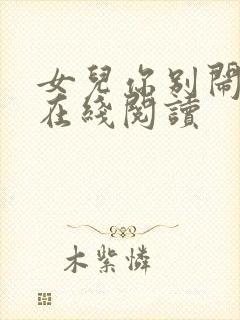 女兒你别鬧
在綫閱讀
木紫憐